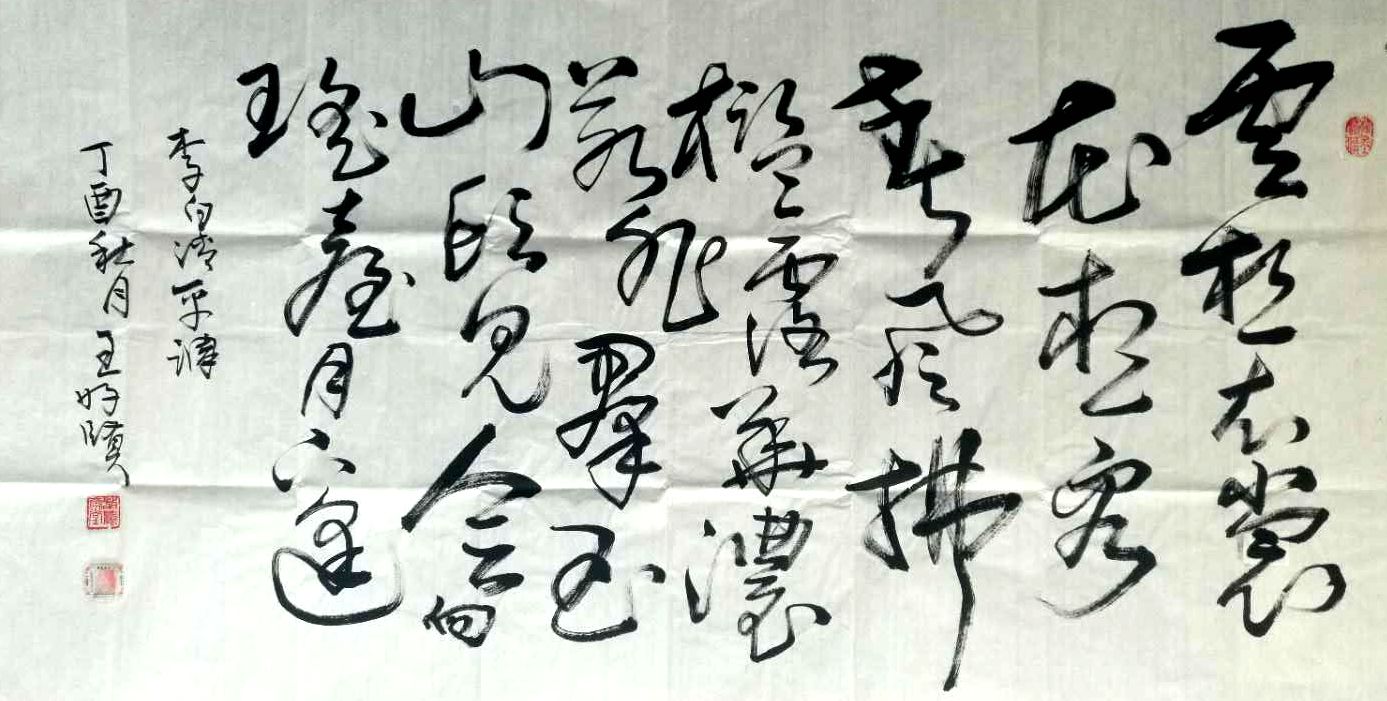 雲想衣裳
花想容
春風拂
檻露華濃
若非羣玉
山頭見會向
瑤臺月下逢
李白清平調
丁酉秋月 王好賢